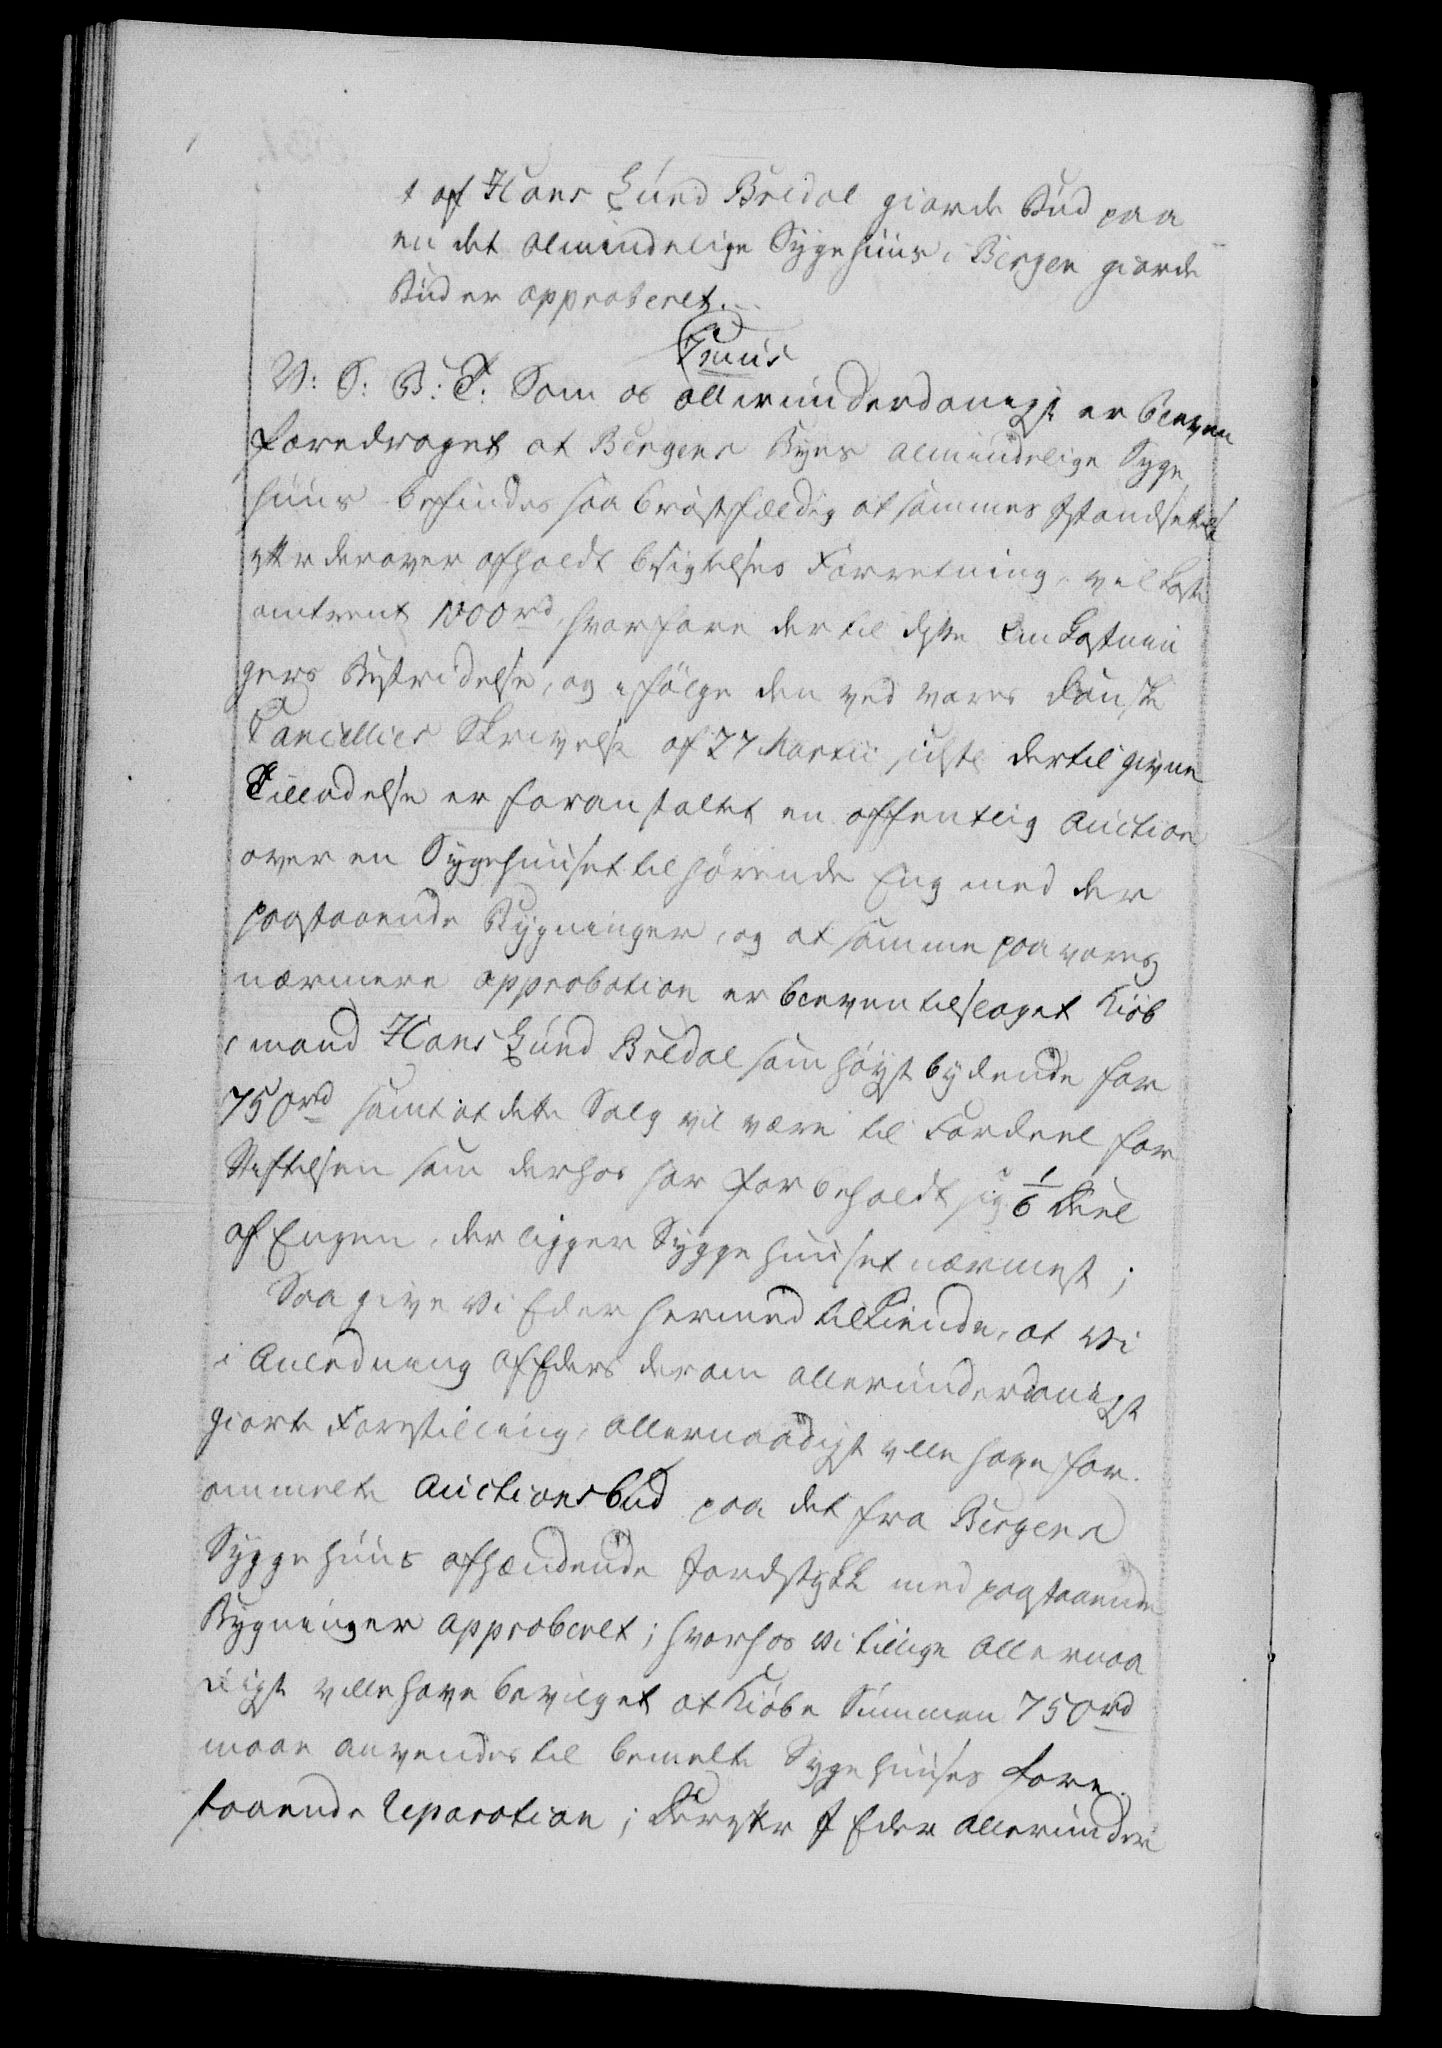 t af Hans Lund Bredal giorde Bud paa
en det almindelige Sygehuus i Bergen giorde
Bud er approberet.
Fruus
V: S: B: T: Som os allerunderdanigst er bleven
foredraget at Bergens Byes almindelige Syge
huus befindes saa brøstfældig at sammes Istandsættelse
efter derover afholdt besigtelses Forretning, vil koste
omtrent 1000 rd, hvorfore der til disse Omkostnin
gers Bestridelse, og i følge den ved vores Danske
Cancellies Skrivelse af 27 Martii sidste dertil givne
Tilladelse er foranstaltet en offentlig Auction
over en Sygehuuset tilhørende Eng med der
paastaaende Bygninger, og at samme paa vores
nærmere approbation er bleven tilslaget Kiøb
mand Hans Lund Bredal som høyst bydende for
750 rd samt at dette Salg vil være til Fordeel for
Stiftelsen som derhos har forbeholdt sig 1/6 Deel
af Engen, der ligger Syggehuuset nærmest;
Saa give Vi Eder hermed tilkiende, at Vi
i Anledning af Eders derom allerunderdanigst
giorte Forestilling, allernaadigst ville have for
ommelte Auctionsbud paa det fra Bergens
Syggehuus afhændende Jordstykke med paastaaende
Bygninger approberet; hvorhos Vi tillige allernaa
digst ville have bevilget at Kiøbe Summen 750 rd
maae anvendes til bemelte Sygehuuses fore
staaende Reparation; Derefter I Eder allerunder